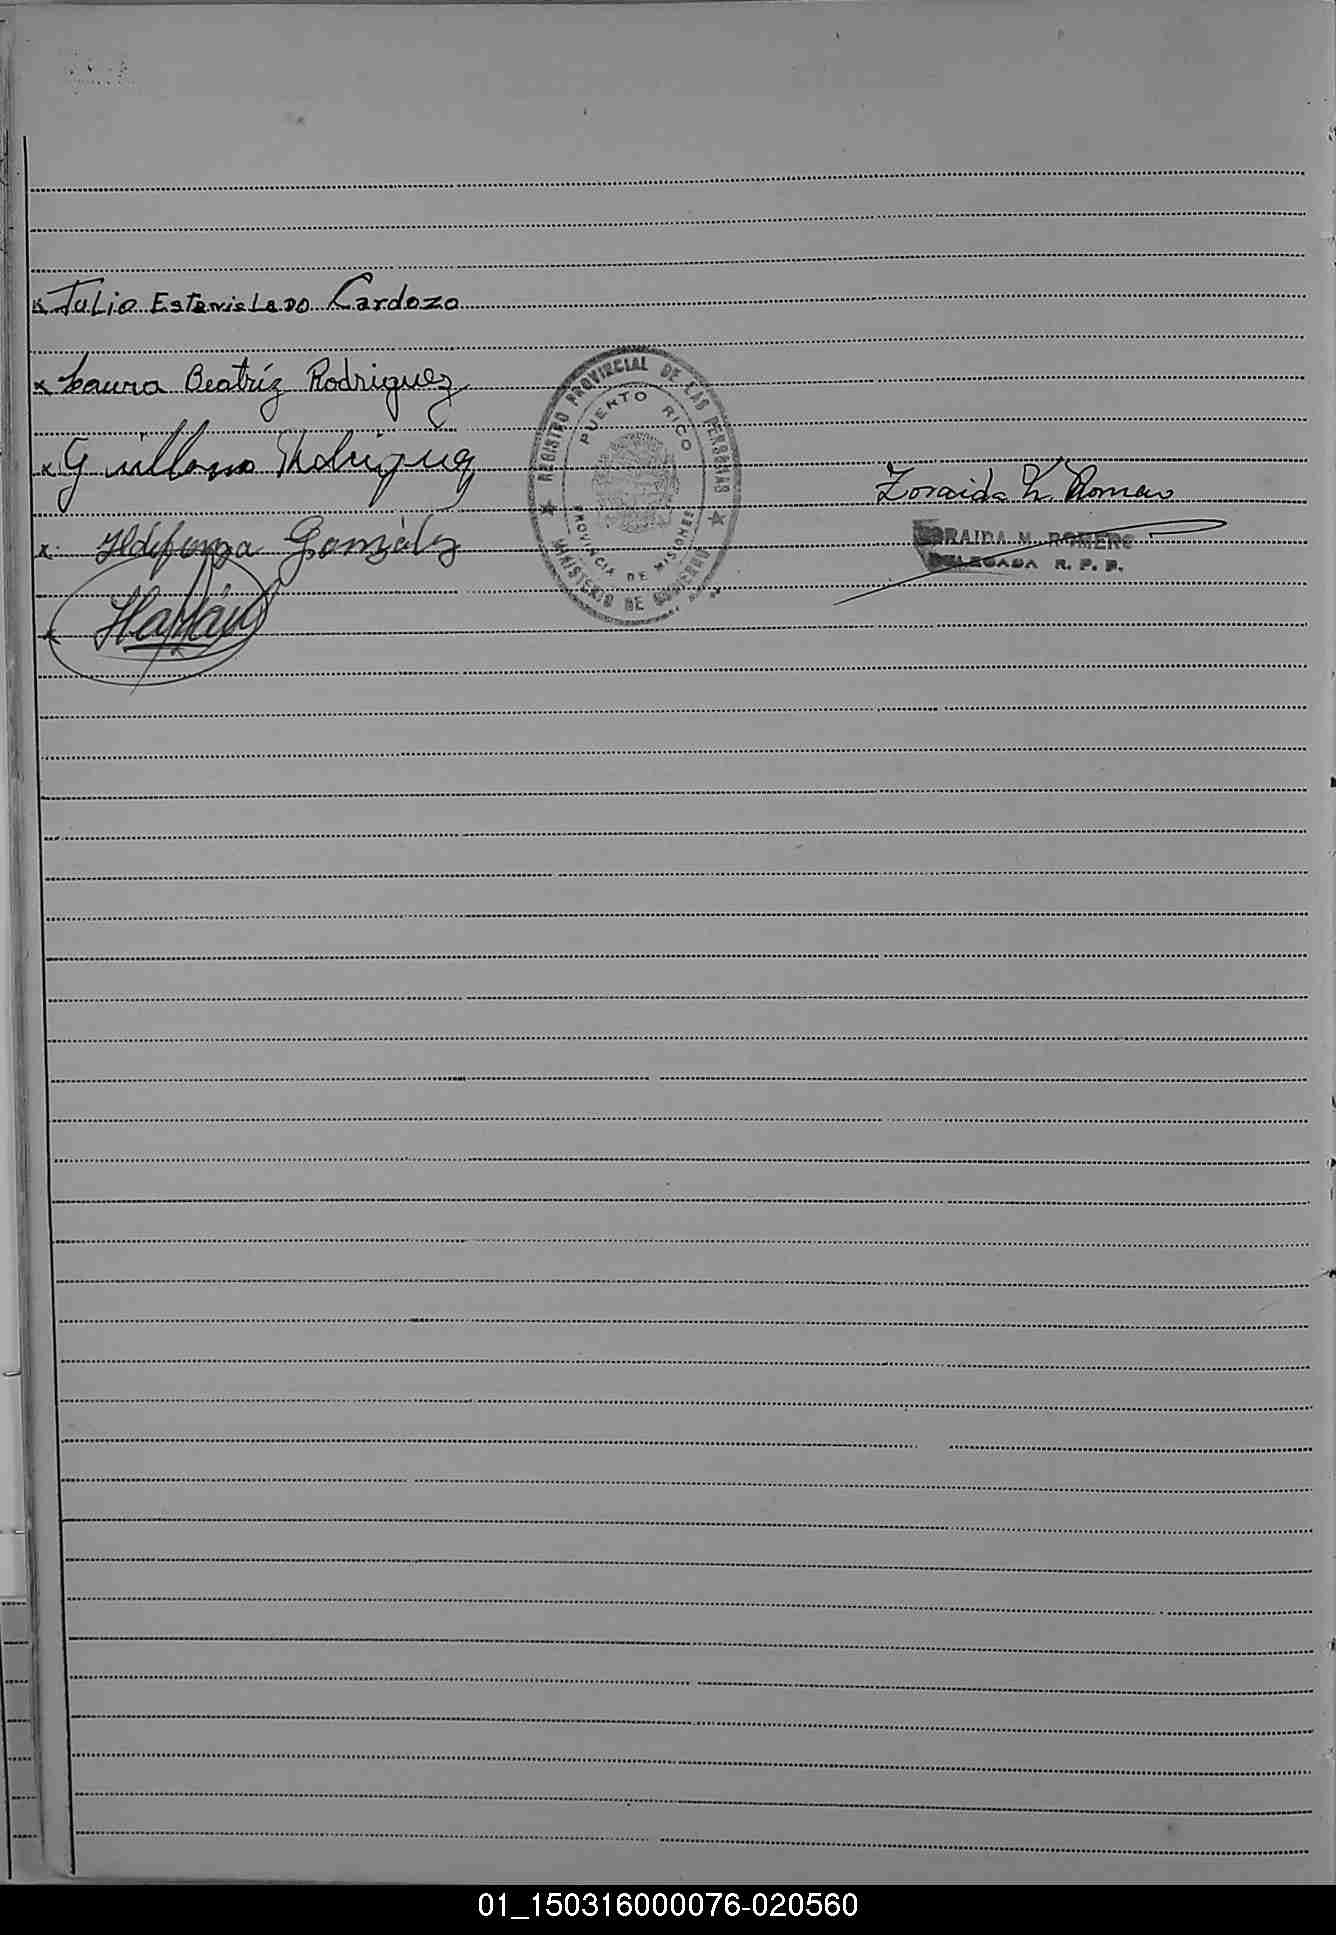 x Julio Estanislado Cardozo
x Laura Beatríz Rodriguez
x Guillermo Rodriguez
x Ildefonza González
x
REGISTRO PROVINCIAL DE LAS PERSONAS
PUERTO RICO
PROVINCIA DE MISIONES
MINISTERIO DE GOBIERNO
Zoraida M. Romero
ZORAIDA M. ROMERO
DELEGADA R. P. P.
01_150316000076-020560